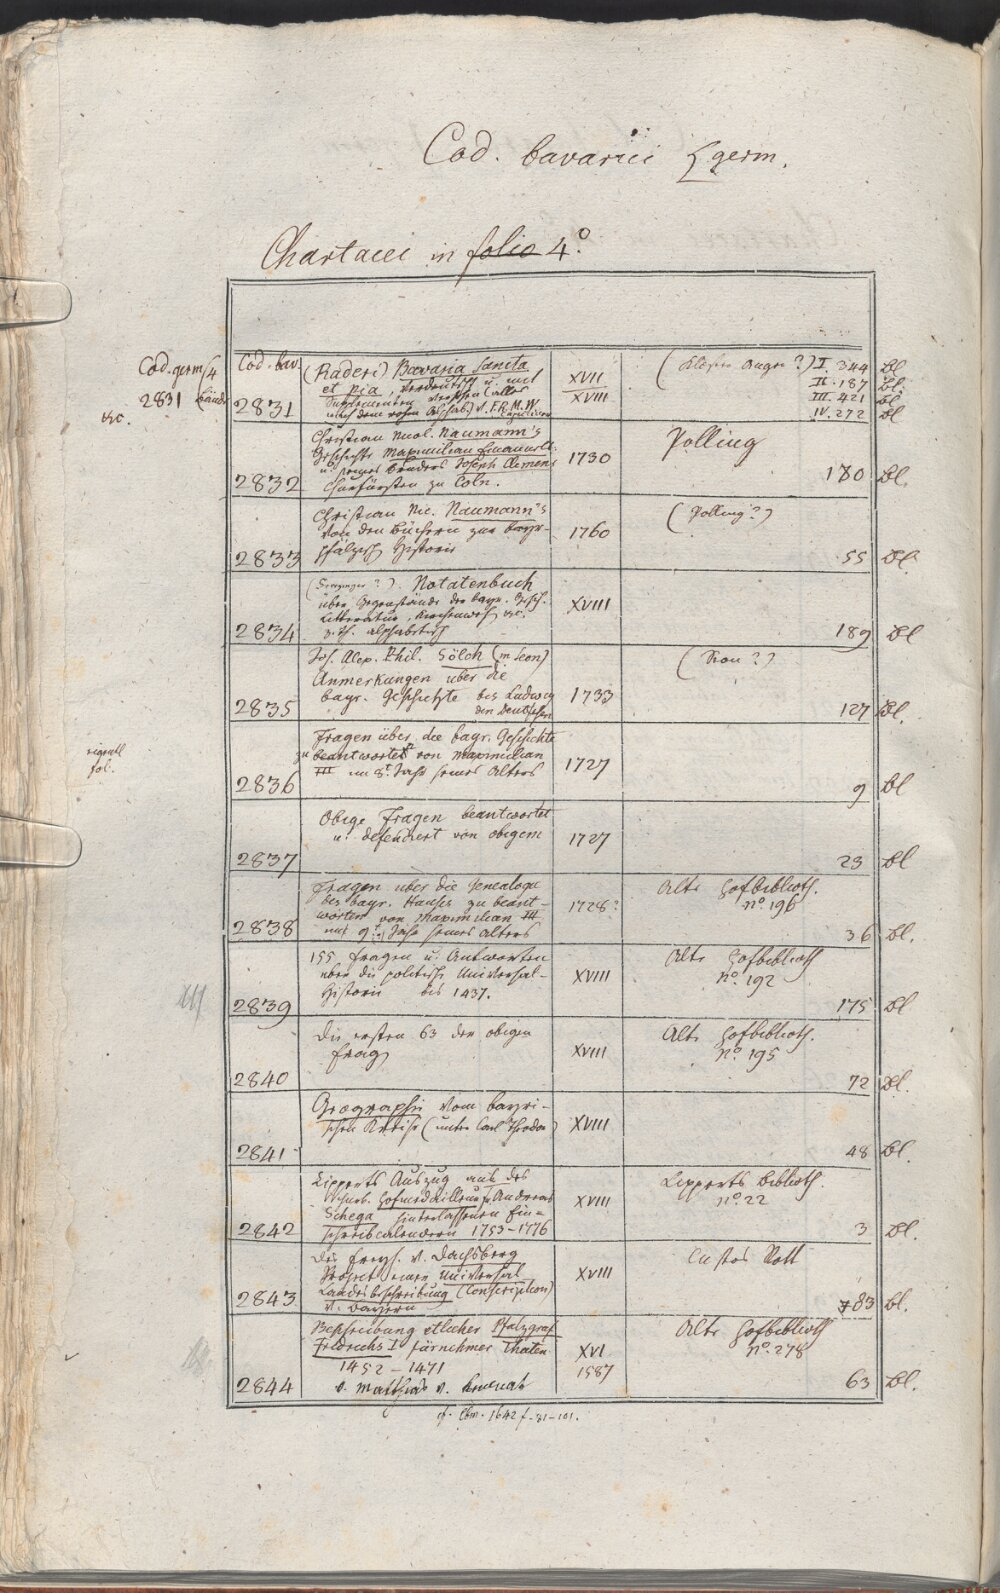 Cod. bavarici germ.
Chartacei in folio 4°
Cod. germ
2831
&c.
Cod. bav.
2831
(Raderi) Bavaria Sancta
et Pia, verdeutscht u. mit
Supplementen
XVII
XVIII
I. 344 Bl
II. 187 Bl.
III. 421 Bl
IV. 272 Bl
2832
Christian Nicol. Naumann's
Geschichte Maximilian Emanuels
u. seines Bruders Joseph Clemens
Churfürsten zu Cöln.
1730
Polling
180 Bl.
2833
Christian Nic. Naumann's
Von den Büchern zur bayr-
pfälzisch Historie
1760
(Polling?)
55 Bl
2834
Notatenbuch
über Gegenstände der bayr. Gesch.
Litteratur, Kirchenwes. &c.
z. Th. alphabetisch
XVIII
189 Bl
2835
Jos. Alex. Phil. Sölch (in Leon)
Anmerkungen über die
bayr. Geschichte bis Ludwig
den Deutschen
1733
127 Bl.
fol.
2836
Fragen über die bayr. Geschichte
zu beantworten von Maximilian
III im 8t. Jahr seines Alters
1727
9 Bl
2837
Obige Fragen beantwortet
u. defendiert von obigem
1727
23 Bl
2838
Fragen über die Genealogie
des bayr. Hauses zu beant-
worten von Maximilian III
im 9. Jahr seines Alters
1728?
Alte Hofbiblioth.
no. 196
36 Bl.
2839
155 Fragen u. Antworten
über die politische Universal-
Historie bis 1437.
XVIII
Alte Hofbiblioth
no. 192
175 Bl
2840
Die ersten 63 der obigen
Frag
XVIII
Alte Hofbiblioth.
no. 195
72 Bl.
2841
Geographie vom bayri-
schen Kreise (unter Carl Theodor)
XVIII
48 Bl.
2842
Lipperts Auszug aus des
Hofmedailleur Andreas
Schega hinterlassenen Ein-
schreibcalendern 1753-1776
XVIII
Lipperts Biblioth.
no. 22
3 Bl.
2843
Des Freyh. v. Dachsberg
Project einer Universal
Landesbeschreibung (Conscription)
v. Bayern
XVIII
Custos Rott
83 Bl.
2844
Beschreibung etlicher Pfalzgraf
Fridrichs I fürnehmer Thaten
1452-1471
v. Matthias v. Kemnat
XVI
1587
Alte Hofbiblioth
no. 278
63 Bl.
cf. Cbm. 1642 f. 31-101.